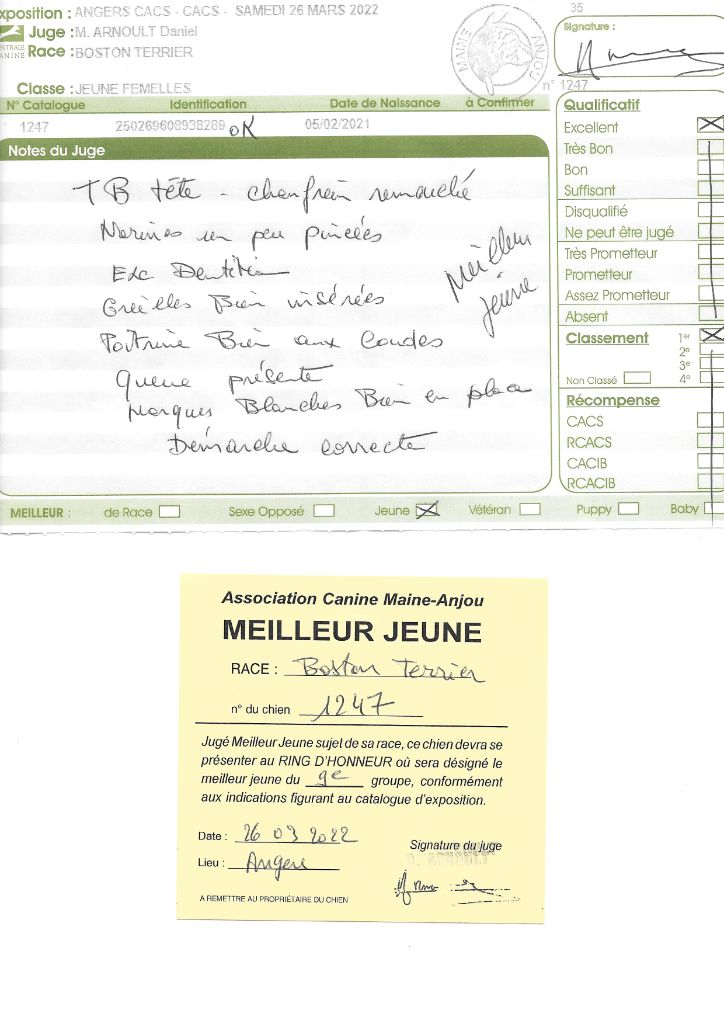 xposition : ANGERS CACS - CACS - SAMEDI 26 MARS 2022
35
Juge : M. ARNOULT Daniel
Signature :
CENTRALE
CANINE
Race : BOSTON TERRIER
MAINE ANJOU
Classe : JEUNE FEMELLES
n° 1247
N° Catalogue Identification Date de Naissance à Confirmer
1247 250269608938289 OK 05/02/2021
Notes du Juge
TB tête chanfrein remouché
Narines un peu pincées
Exc Dentition
Oreilles Bien insérées
Poitrine Bien aux Coudes
Queue présente
Marques Blanches Bien en place
Démarche correcte
Meilleur
jeune
Qualificatif
Excellent
Très Bon
Bon
Suffisant
Disqualifié
Ne peut être jugé
Très Prometteur
Prometteur
Assez Prometteur
Absent
Classement 1er
2e
3e
Non Classé 4e
Récompense
CACS
RCACS
CACIB
RCACIB
MEILLEUR : de Race Sexe Opposé Jeune Vétéran Puppy Baby
Association Canine Maine-Anjou
MEILLEUR JEUNE
RACE : Boston Terrier
n° du chien 1247
Jugé Meilleur Jeune sujet de sa race, ce chien devra se
présenter au RING D'HONNEUR où sera désigné le
meilleur jeune du 9e groupe, conformément
aux indications figurant au catalogue d'exposition.
Date : 26 03 2022
Signature du juge
D. ARNOULT
Lieu : Angers
A REMETTRE AU PROPRIÉTAIRE DU CHIEN